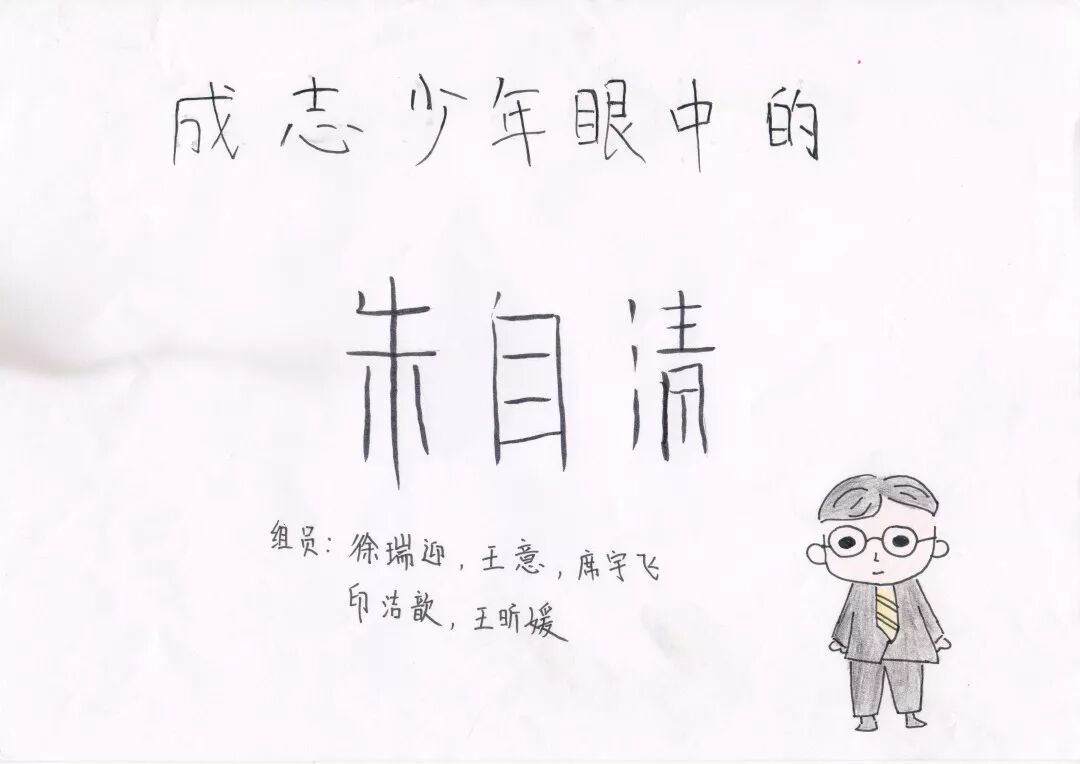 成志少年眼中的
朱自清
组员：徐瑞迎，王意，席宇飞
印洁歆，王昕媛